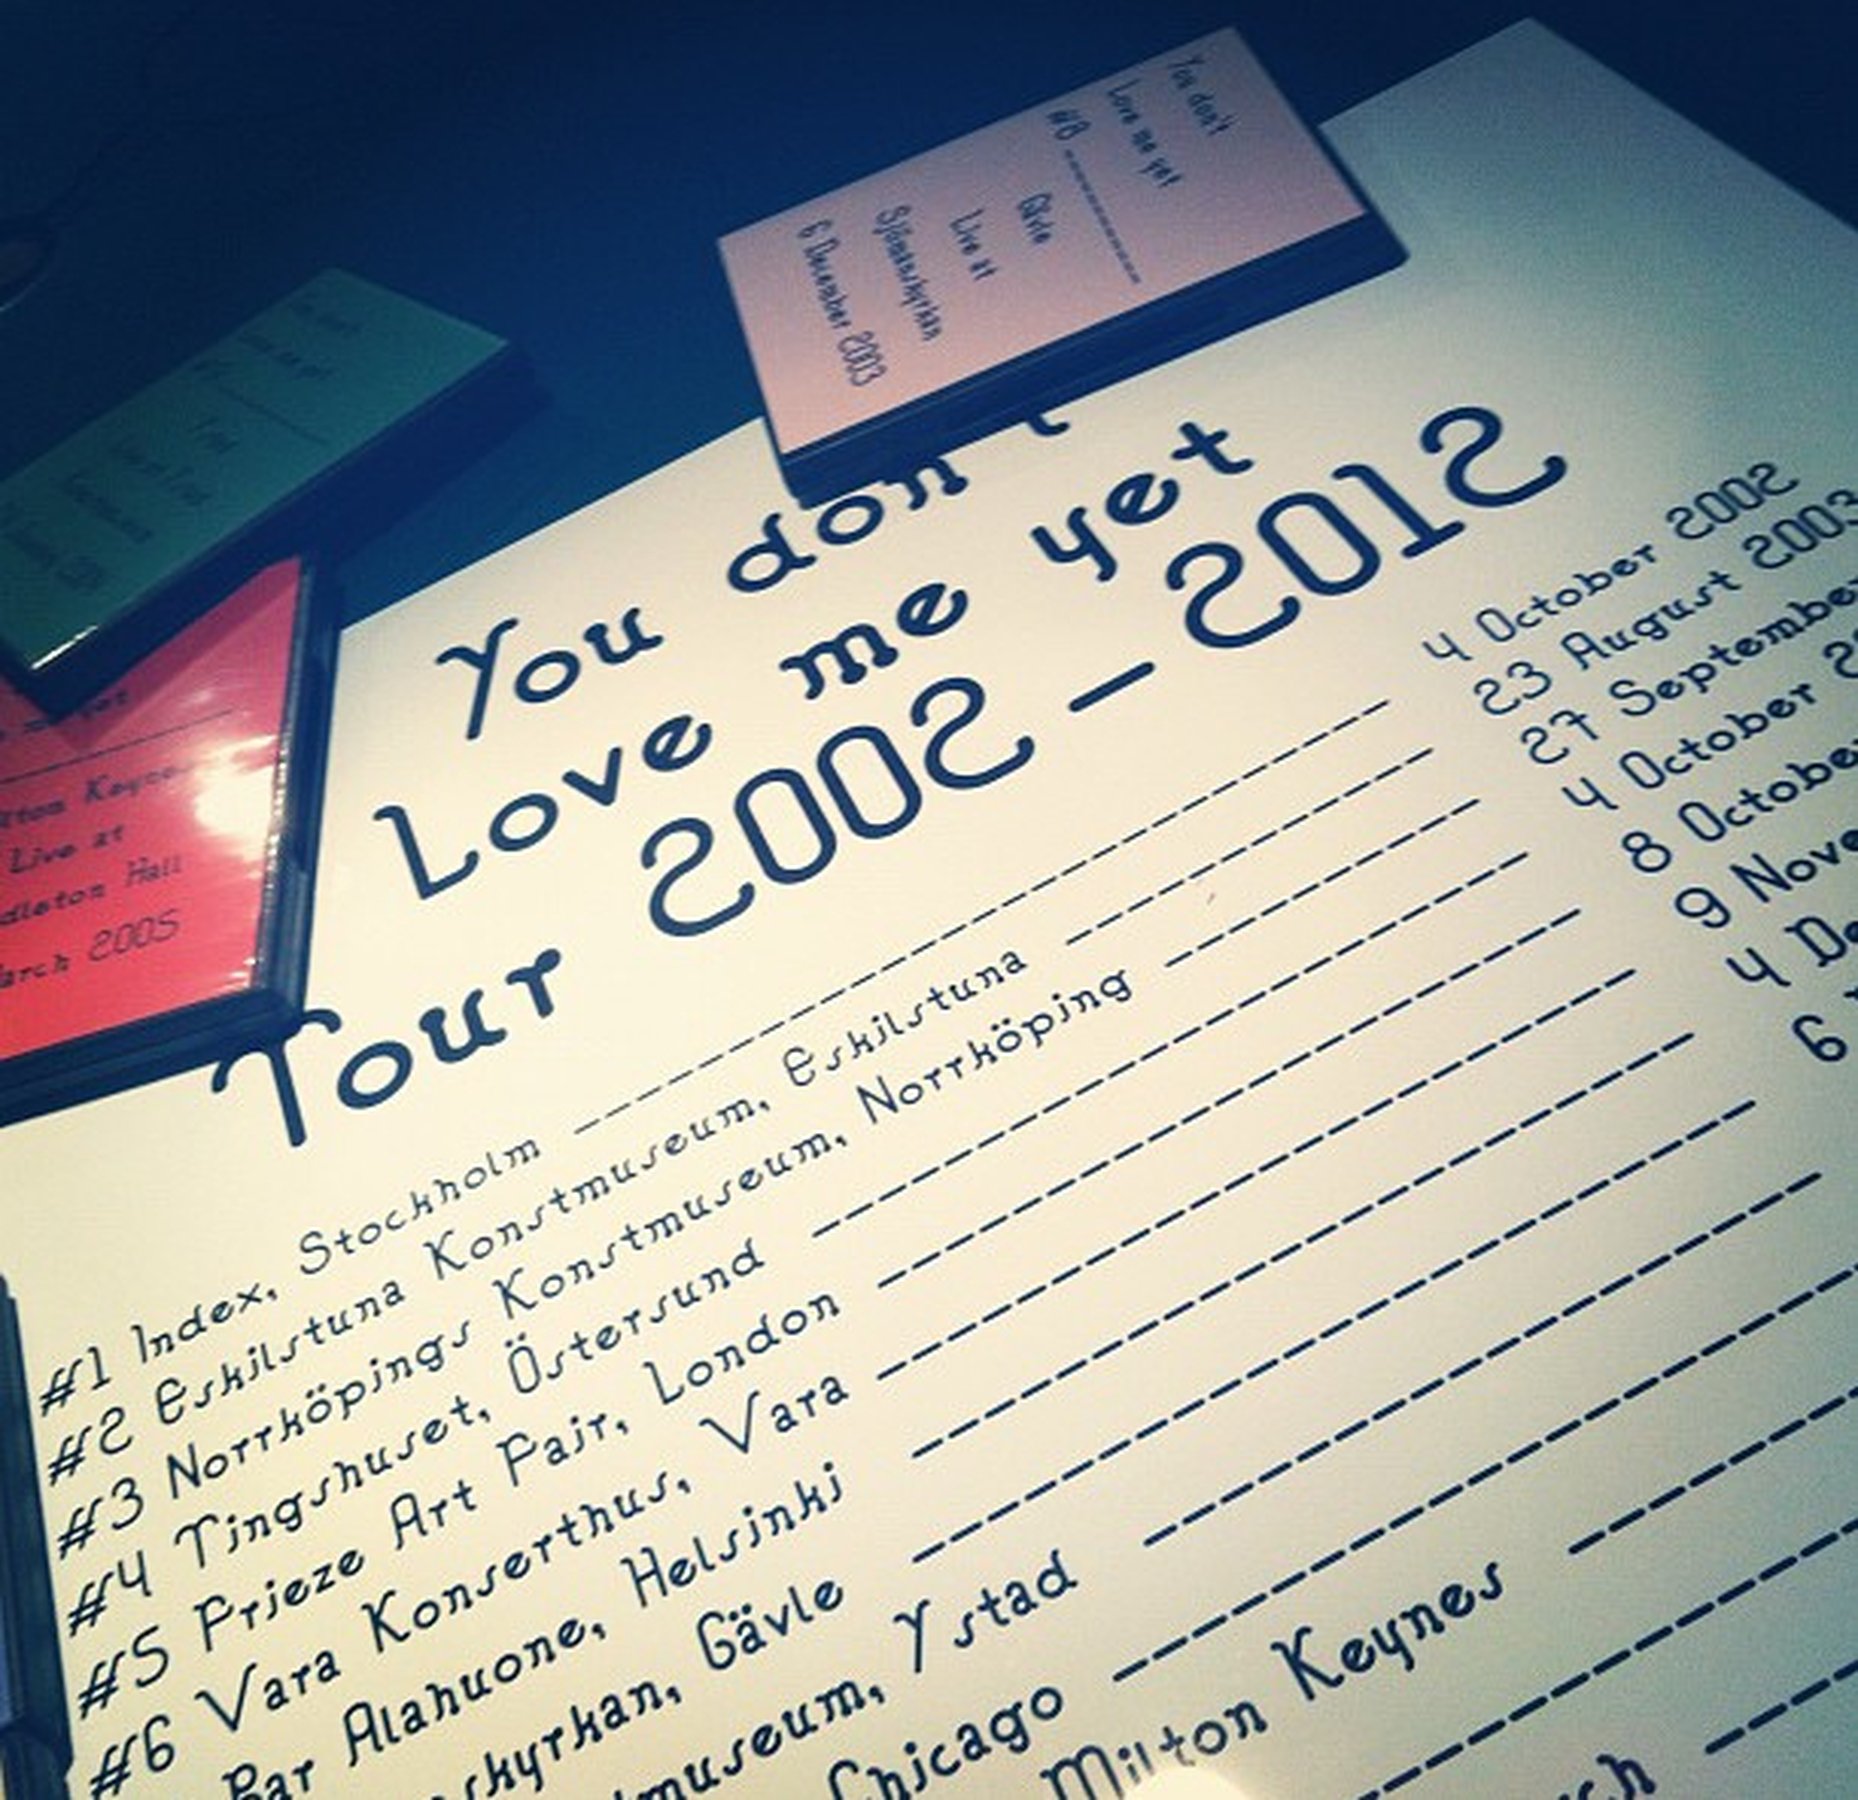 You don't
Love me yet
#8
Gävle
Live at
Sjömanskyrkan
6 December 2003
Live at
2005
You don't
Love me yet
Tour 2002 – 2012
#1 Index, Stockholm 4 October 2002
#2 Eskilstuna Konstmuseum, Eskilstuna 23 August 2003
#3 Norrköpings Konstmuseum, Norrköping 27 September
#4 Tingshuset, Östersund 4 October
#5 Frieze Art Fair, London 8 October
#6 Vara Konserthus, Vara 9
Bar Alahuone, Helsinki 4
Gävle 6
Ystad
Chicago
Milton Keynes